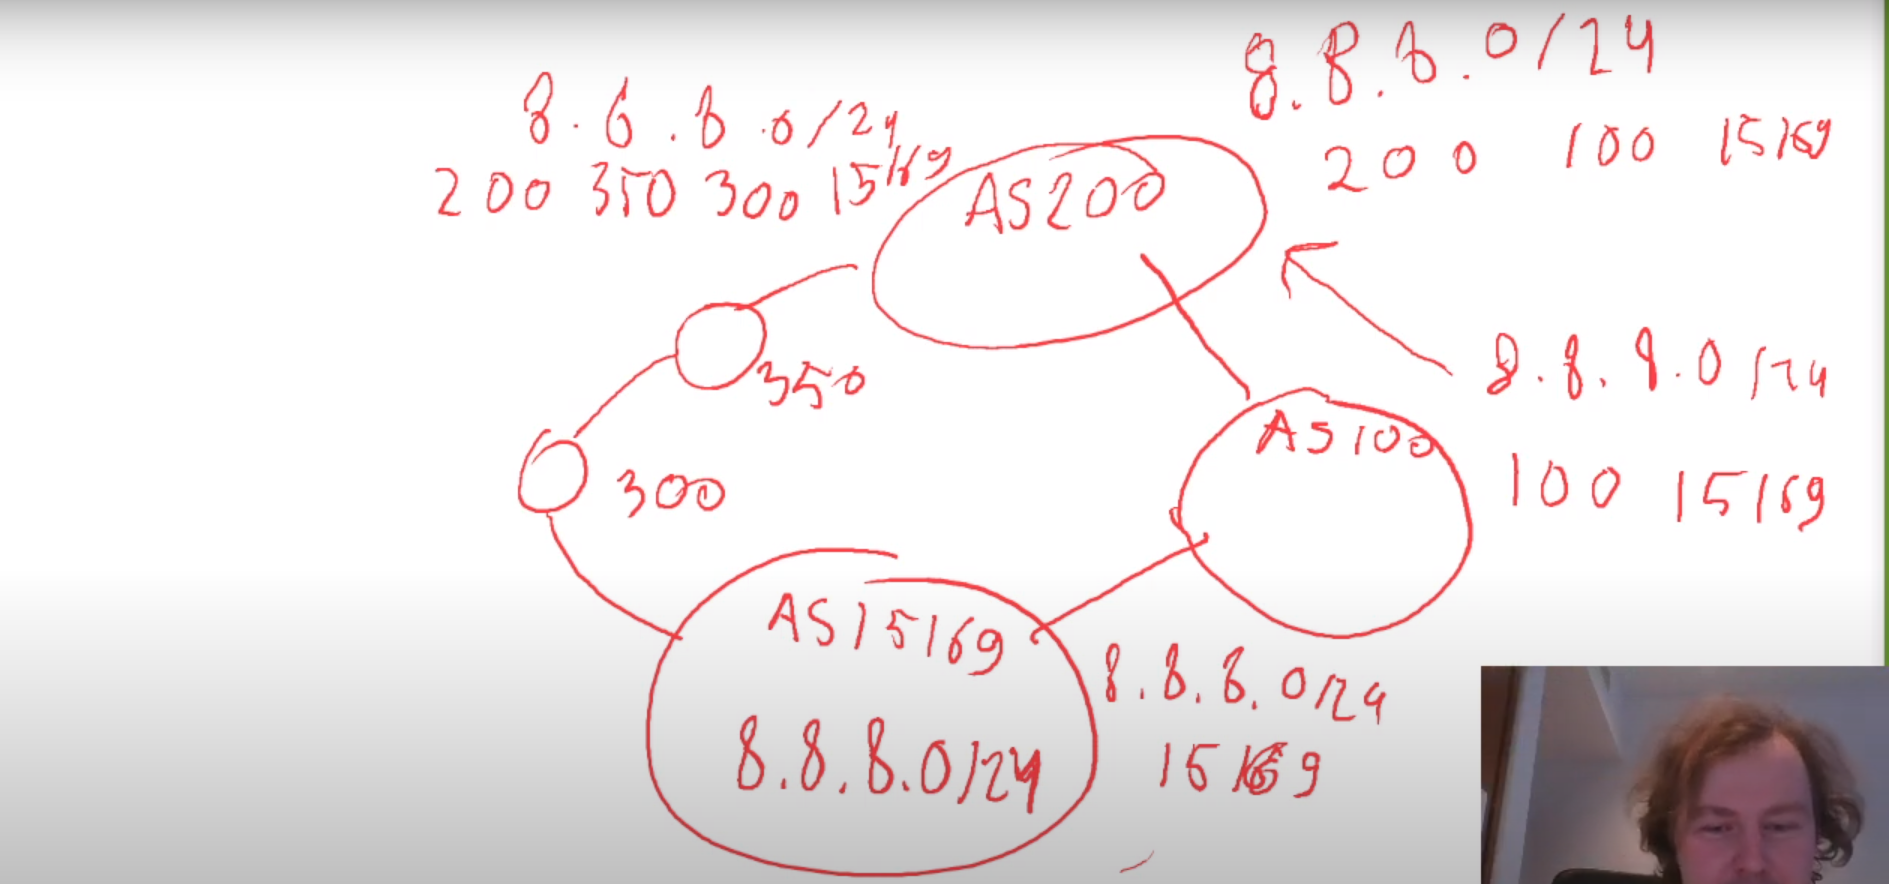 8.8.8.0/24
200 100 15169
8.8.8.0/24
200 350 300 15169
AS200
350
300
8.8.8.0/24
100 15169
AS100
AS15169
8.8.8.0/24
8.8.8.0/24
15169